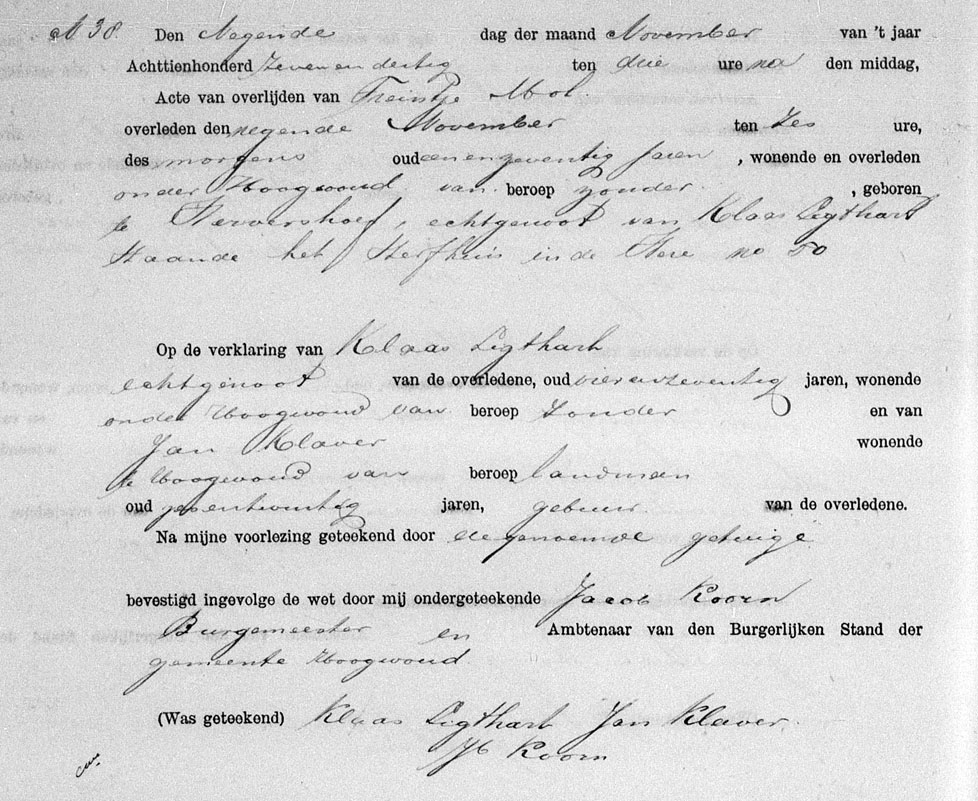 N 38. Den Negende dag der maand November van 't jaar
Achttienhonderd Zevenendertig ten drie ure na den middag,
Acte van overlijden van Treintje Mol
overleden den negende November ten Zes ure,
des morgens oud eenenzeventig jaren, wonende en overleden
onder Hoogwoud van beroep zonder, geboren
te Wervershoef, echtgenoot van Klaas Ligthart
Staande het Sterfhuis in de Were no 50
Op de verklaring van Klaas Ligthart
echtgenoot van de overledene, oud vierenzeventig jaren, wonende
onder Hoogwoud van beroep Zonder en van
Jan Klaver wonende
te Hoogwoud van beroep landman
oud zesentwintig jaren, gebuur van de overledene.
Na mijne voorlezing geteekend door de genoemde getuige
bevestigd ingevolge de wet door mij ondergeteekende Jacob Koorn
Burgemeester en Ambtenaar van den Burgerlijken Stand der
gemeente Hoogwoud
(Was geteekend) Klaas Ligthart Jan Klaver.
Jb Koorn